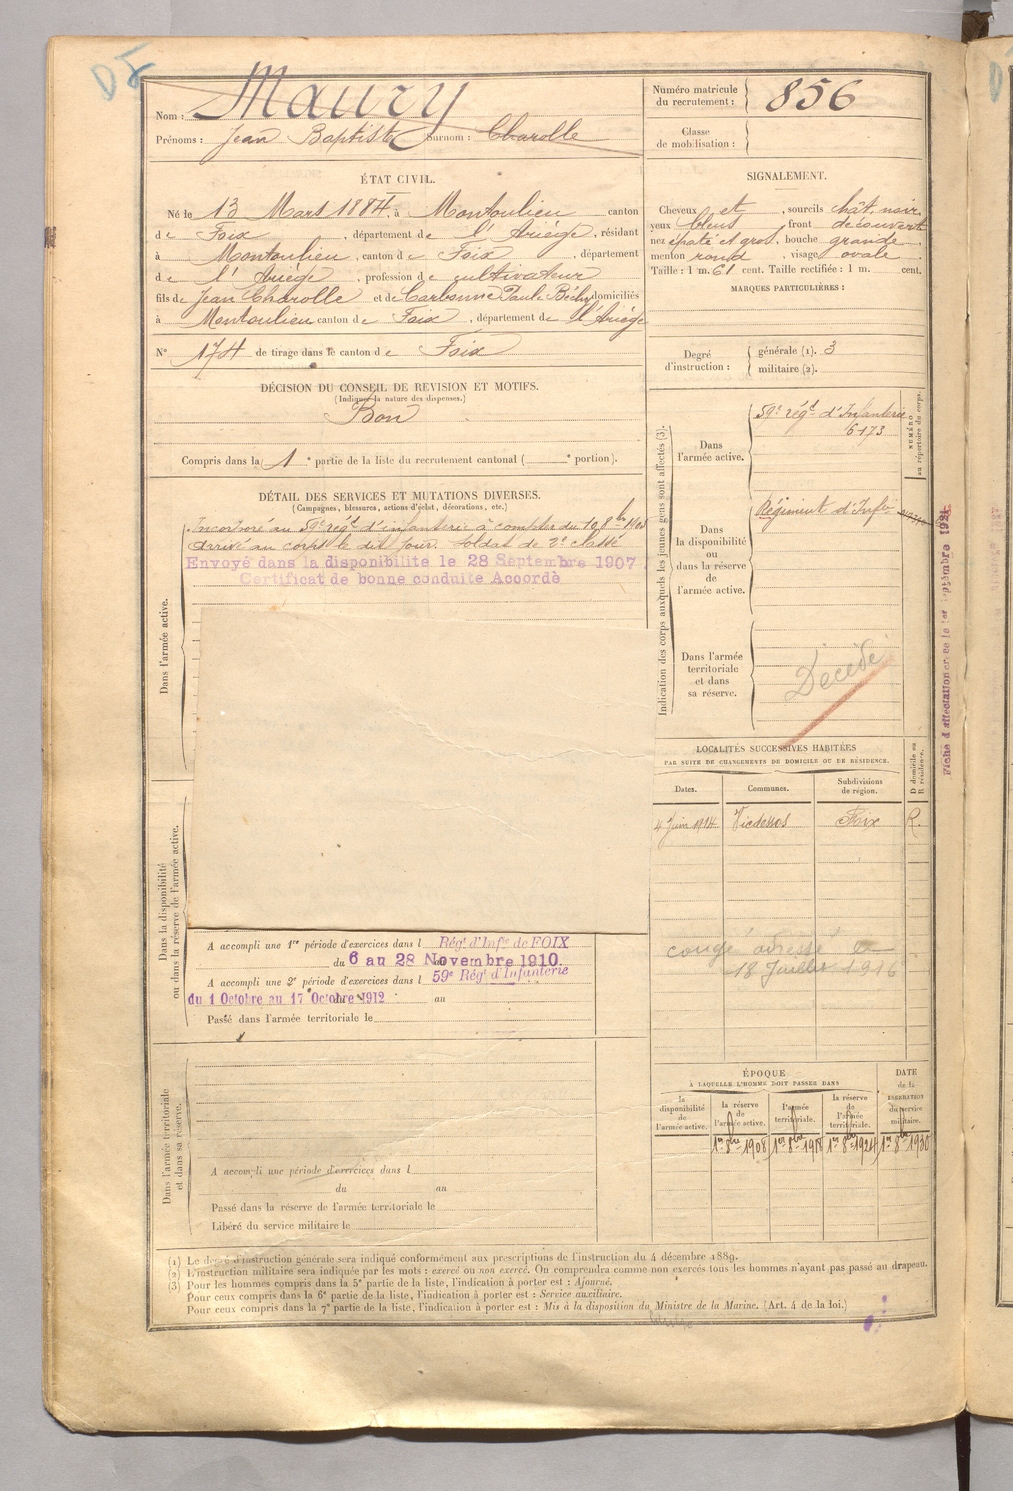 DF
Nom : Maury
Prénoms : Jean Baptiste Surnom : Charolle
Numéro matricule
du recrutement : 856
Classe
de mobilisation :
ÉTAT CIVIL.
Né le 13 Mars 1884, à Montoulieu canton
de Foix, département de l'Ariège, résidant
à Montoulieu, canton de Foix, département
de l'Ariège, profession de cultivateur
fils de Jean Charolle et de Carbonne Paule domiciliés
à Montoulieu canton de Foix, département de l'Ariège
N° 174 de tirage dans le canton de Foix
SIGNALEMENT.
Cheveux et, sourcils chât. noir
yeux bleus, front découvert
nez épaté et gros, bouche grande
menton rond, visage ovale
Taille : 1 m. 61 cent. Taille rectifiée : 1 m. cent.
MARQUES PARTICULIÈRES :
Degré
d'instruction :
générale (1). 3
militaire (2).
DÉCISION DU CONSEIL DE REVISION ET MOTIFS.
(Indiquer la nature des dispenses.)
Bon
Compris dans la 1e partie de la liste du recrutement cantonal ( e portion).
DÉTAIL DES SERVICES ET MUTATIONS DIVERSES.
(Campagnes, blessures, actions d'éclat, décorations, etc.)
Incorporé au 59e régt d'infanterie à compter du 10 8bre 1905
Arrivé au corps le dit jour. Soldat de 2e classe
Envoyé dans la disponibilité le 28 Septembre 1907
Certificat de bonne conduite Accordé
Dans l'armée active.
Dans la disponibilité
ou dans la réserve de l'armée active.
A accompli une 1re période d'exercices dans l Régt d'Infie de FOIX
du 6 au 28 Novembre 1910.
A accompli une 2e période d'exercices dans l 59e Régt d'Infanterie
du 1 Octobre au 17 Octobre 1912 au
Passé dans l'armée territoriale le
Dans l'armée territoriale
et dans sa réserve.
A accompli une période d'exercices dans l
du au
Passé dans la réserve de l'armée territoriale le
Libéré du service militaire le
Indication des corps auxquels les jeunes gens sont affectés (3).
Dans
l'armée active.
59e régt d'Infanterie
6173
NUMÉRO
au répertoire du corps.
Dans
la disponibilité
ou
dans la réserve
de
l'armée active.
Régiment d'Infie
Dans l'armée
territoriale
et dans
sa réserve.
Décédé
Fiche d'affectation créée le 1er Septembre 1921
LOCALITÉS SUCCESSIVES HABITÉES
PAR SUITE DE CHANGEMENTS DE DOMICILE OU DE RÉSIDENCE.
D domicile ou
R résidence.
Dates. Communes. Subdivisions
de région.
4 Juin 1914 Vicdessos Foix R.
congé adressé le
18 Juillet 1916
ÉPOQUE
À LAQUELLE L'HOMME DOIT PASSER DANS
DATE
de la
LIBÉRATION
du service
militaire.
la
disponibilité
de
l'armée active.
la réserve
de
l'armée active.
l'armée
territoriale.
la réserve
de
l'armée
territoriale.
1er 8bre 1908 1er 8bre 1918 1er 8bre 1924 1er 8bre 1930
(1) Le degré d'instruction générale sera indiqué conformément aux prescriptions de l'instruction du 4 décembre 1889.
(2) L'instruction militaire sera indiquée par les mots : exercé ou non exercé. On comprendra comme non exercés tous les hommes n'ayant pas passé au drapeau.
(3) Pour les hommes compris dans la 5e partie de la liste, l'indication à porter est : Ajourné.
Pour ceux compris dans la 6e partie de la liste, l'indication à porter est : Service auxiliaire.
Pour ceux compris dans la 7e partie de la liste, l'indication à porter est : Mis à la disposition du Ministre de la Marine. (Art. 4 de la loi.)